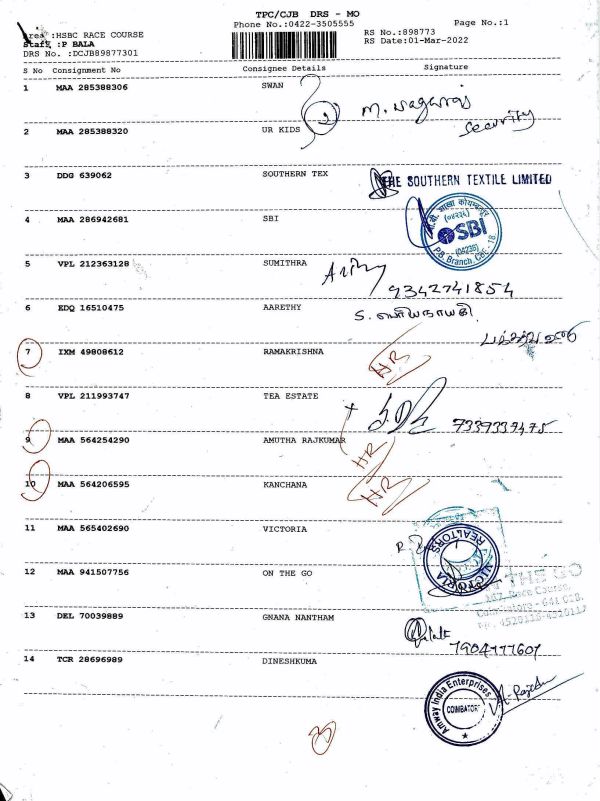 TPC/CJB DRS - MO
Phone No.:0422-3505555
Page No.:1
Area :HSBC RACE COURSE
RS No.:898773
Staff :P BALA
RS Date:01-Mar-2022
DRS No. :DCJB89877301
S No Consignment No Consignee Details Signature
1 MAA 285388306 SWAN
M. Nagaraj
Security
2 MAA 285388320 UR KIDS
3 DDG 639062 SOUTHERN TEX
THE SOUTHERN TEXTILE LIMITED
4 MAA 286942681 SBI
SBI
P.B. Branch, CBE - 18.
5 VPL 212363128 SUMITHRA
9342741854
6 EDQ 16510475 AARETHY
7 IXM 49808612 RAMAKRISHNA
HR
8 VPL 211993747 TEA ESTATE
7339337475
9 MAA 564254290 AMUTHA RAJKUMAR
HR
10 MAA 564206595 KANCHANA
HR
11 MAA 565402690 VICTORIA
VICTORIA REALTORS
12 MAA 941507756 ON THE GO
THE GO
Race Course
Coimbatore - 641 018.
13 DEL 70039889 GNANA NANTHAM
7904777607
14 TCR 28696989 DINESHKUMA
Amway India Enterprises
COIMBATORE